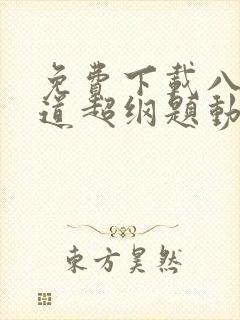 免费下载八
道超纲题動
東方昊然